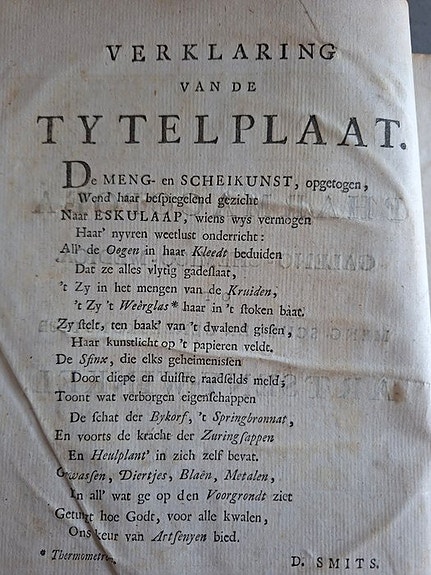 VERKLARING
VAN DE
TYTELPLAAT.
De MENG- en SCHEIKUNST, opgetogen,
Wend haar bespiegelend gezicht
Naar ESKULAAP, wiens wys vermogen
Haar' nyvren weetlust onderricht:
All' de Oogen in haar Kleedt beduiden
Dat ze alles vlytig gadeslaat,
't Zy in het mengen van de Kruiden,
't Zy 't Weêrglas * haar in 't stoken baat.
Zy stelt, ten baak' van 't dwalend gissen,
Haar kunstlicht op 't papieren veldt.
De Sfinx, die elks geheimenissen
Door diepe en duistre raadselds meld;
Toont wat verborgen eigenschappen
De schat der Bykorf, 't Springbronnat,
En voorts de kracht der Zuringsappen
En Heulplant' in zich zelf bevat.
Gewassen, Diertjes, Blaên, Metalen,
In all' wat ge op den Voorgrondt ziet
Getuigt hoe Godt, voor alle kwalen,
Ons keur van Artsenyen bied.
* Thermometre.
D. SMITS.